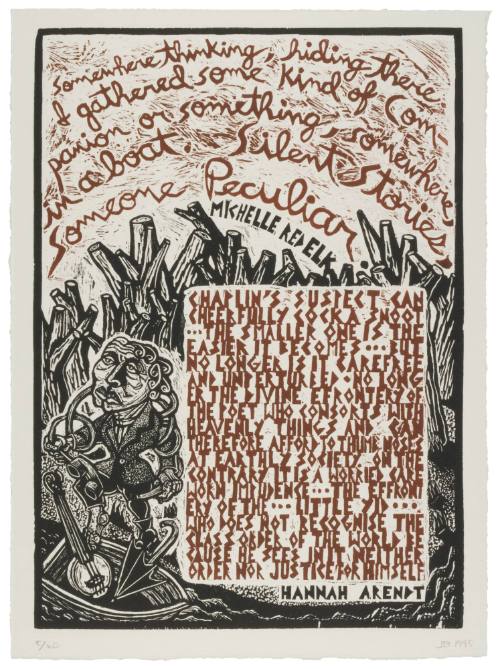 Somewhere thinking, hiding there.
I gathered some kind of Com-
panion or something, somewhere,
in a boat. Silent Stories,
Someone Peculiar.
MICHELLE RED ELK
CHAPLIN'S SUSPECT CAN
CHEERFULLY SOCK A SNOOT
... THE SMALLER ONE IS THE
EASIER IT BECOMES ... BUT
NO LONGER IS IT CAREFREE
AND UNPERTURBED. NO LONG
ER THE DIVINE EFFRONTERY OF
THE POET WHO CONSORTS WITH
HEAVENLY THINGS AND CAN
THEREFORE AFFORD TO THUMB NOSES
AT EARTHLY SOCIETY. ON THE
CONTRARY IT IS A WORRIED CARE
WORN IMPUDENSE ... THE EFFRONT
ERY OF THE ... LITTLE
WHO DOES NOT RECOGNISE THE
CLASS ORDER OF THE WORLD BE
CAUSE HE SEES IN IT NEITHER
ORDER NOR JUSTICE FOR HIMSELF
HANNAH ARENDT
1995